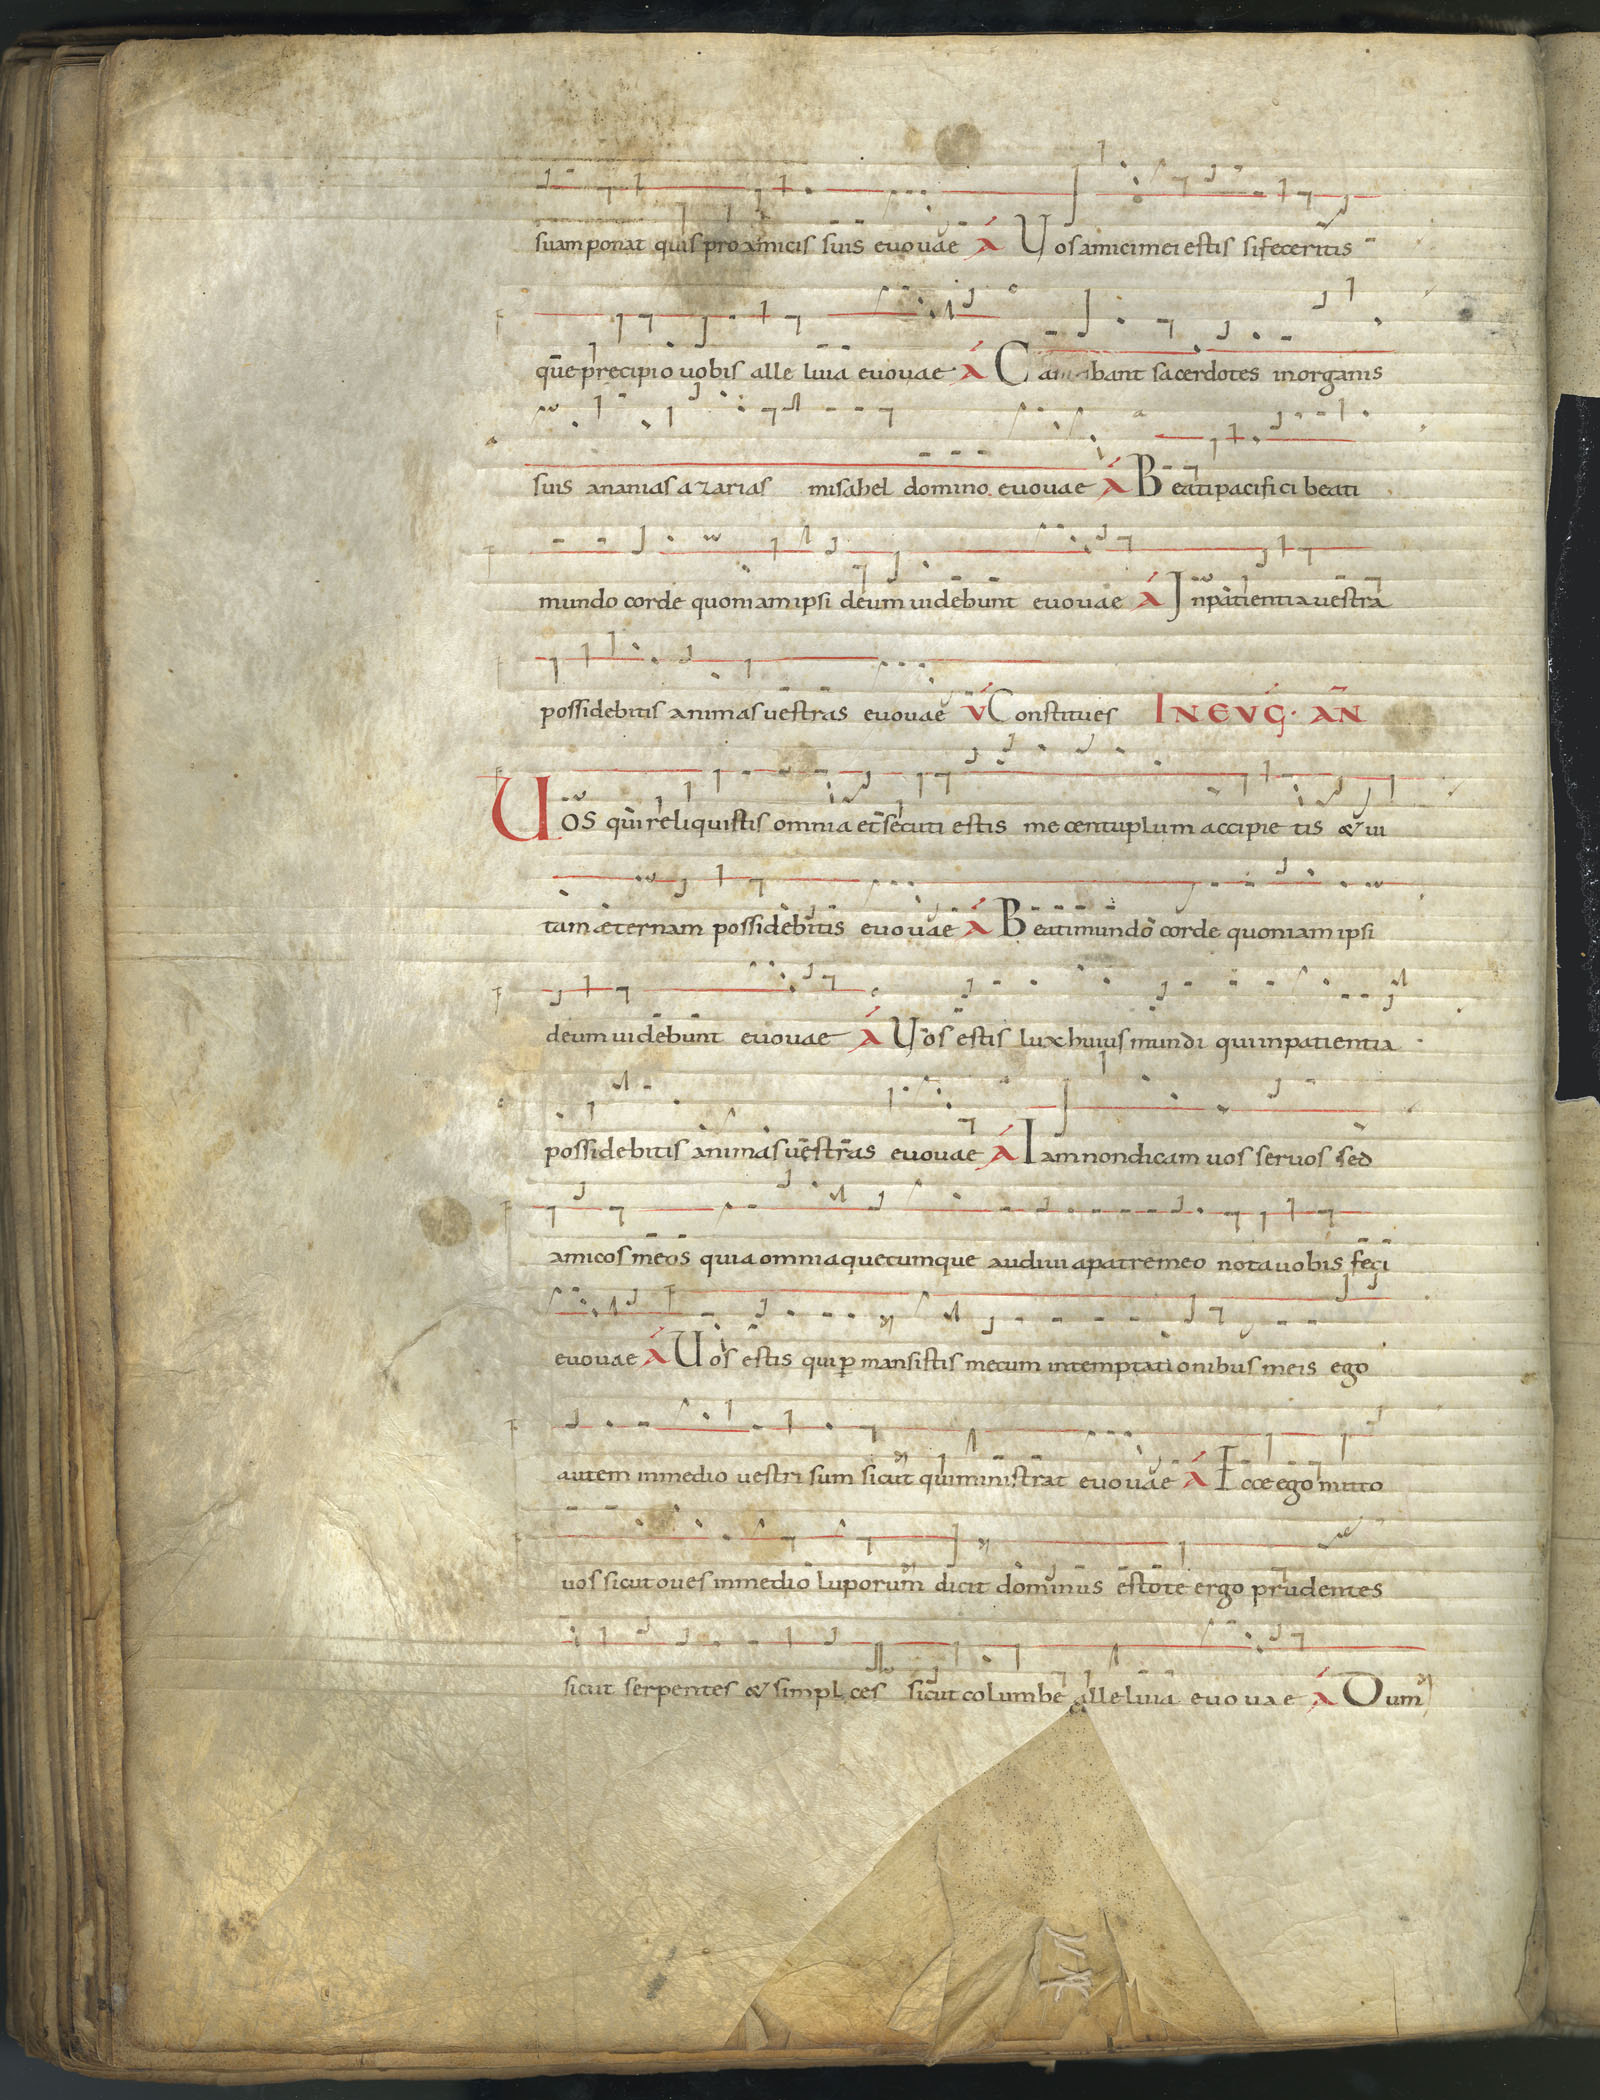 suam ponat quis pro amicis suis evovae A Uos amici mei estis si feceritis
que precipio uobis alleluia evovae A Cantabant sacerdotes in organis
suis ananias azarias misahel domino evovae A Beati pacifici beati
mundo corde quoniam ipsi deum uidebunt evovae A In patientia uestra
possidebitis animas uestras evovae V Constitues IN EVG. AN
Uos qui reliquistis omnia et secuti estis me centuplum accipietis & ui
tam æternam possidebitis evovae A Beati mundo corde quoniam ipsi
deum uidebunt evovae A Uos estis lux huius mundi qui in patientia
possidebitis animas uestras evovae A Iam non dicam uos seruos sed
amicos meos quia omnia quecumque audiui a patre meo nota uobis feci
evovae A Uos estis qui p mansistis mecum in temptationibus meis ego
autem in medio uestri sum sicut qui ministrat evovae A Ecce ego mitto
uos sicut oues in medio luporum dicit dominus estote ergo prudentes
sicut serpentes & simplices sicut columbe alleluia evovae A Dum